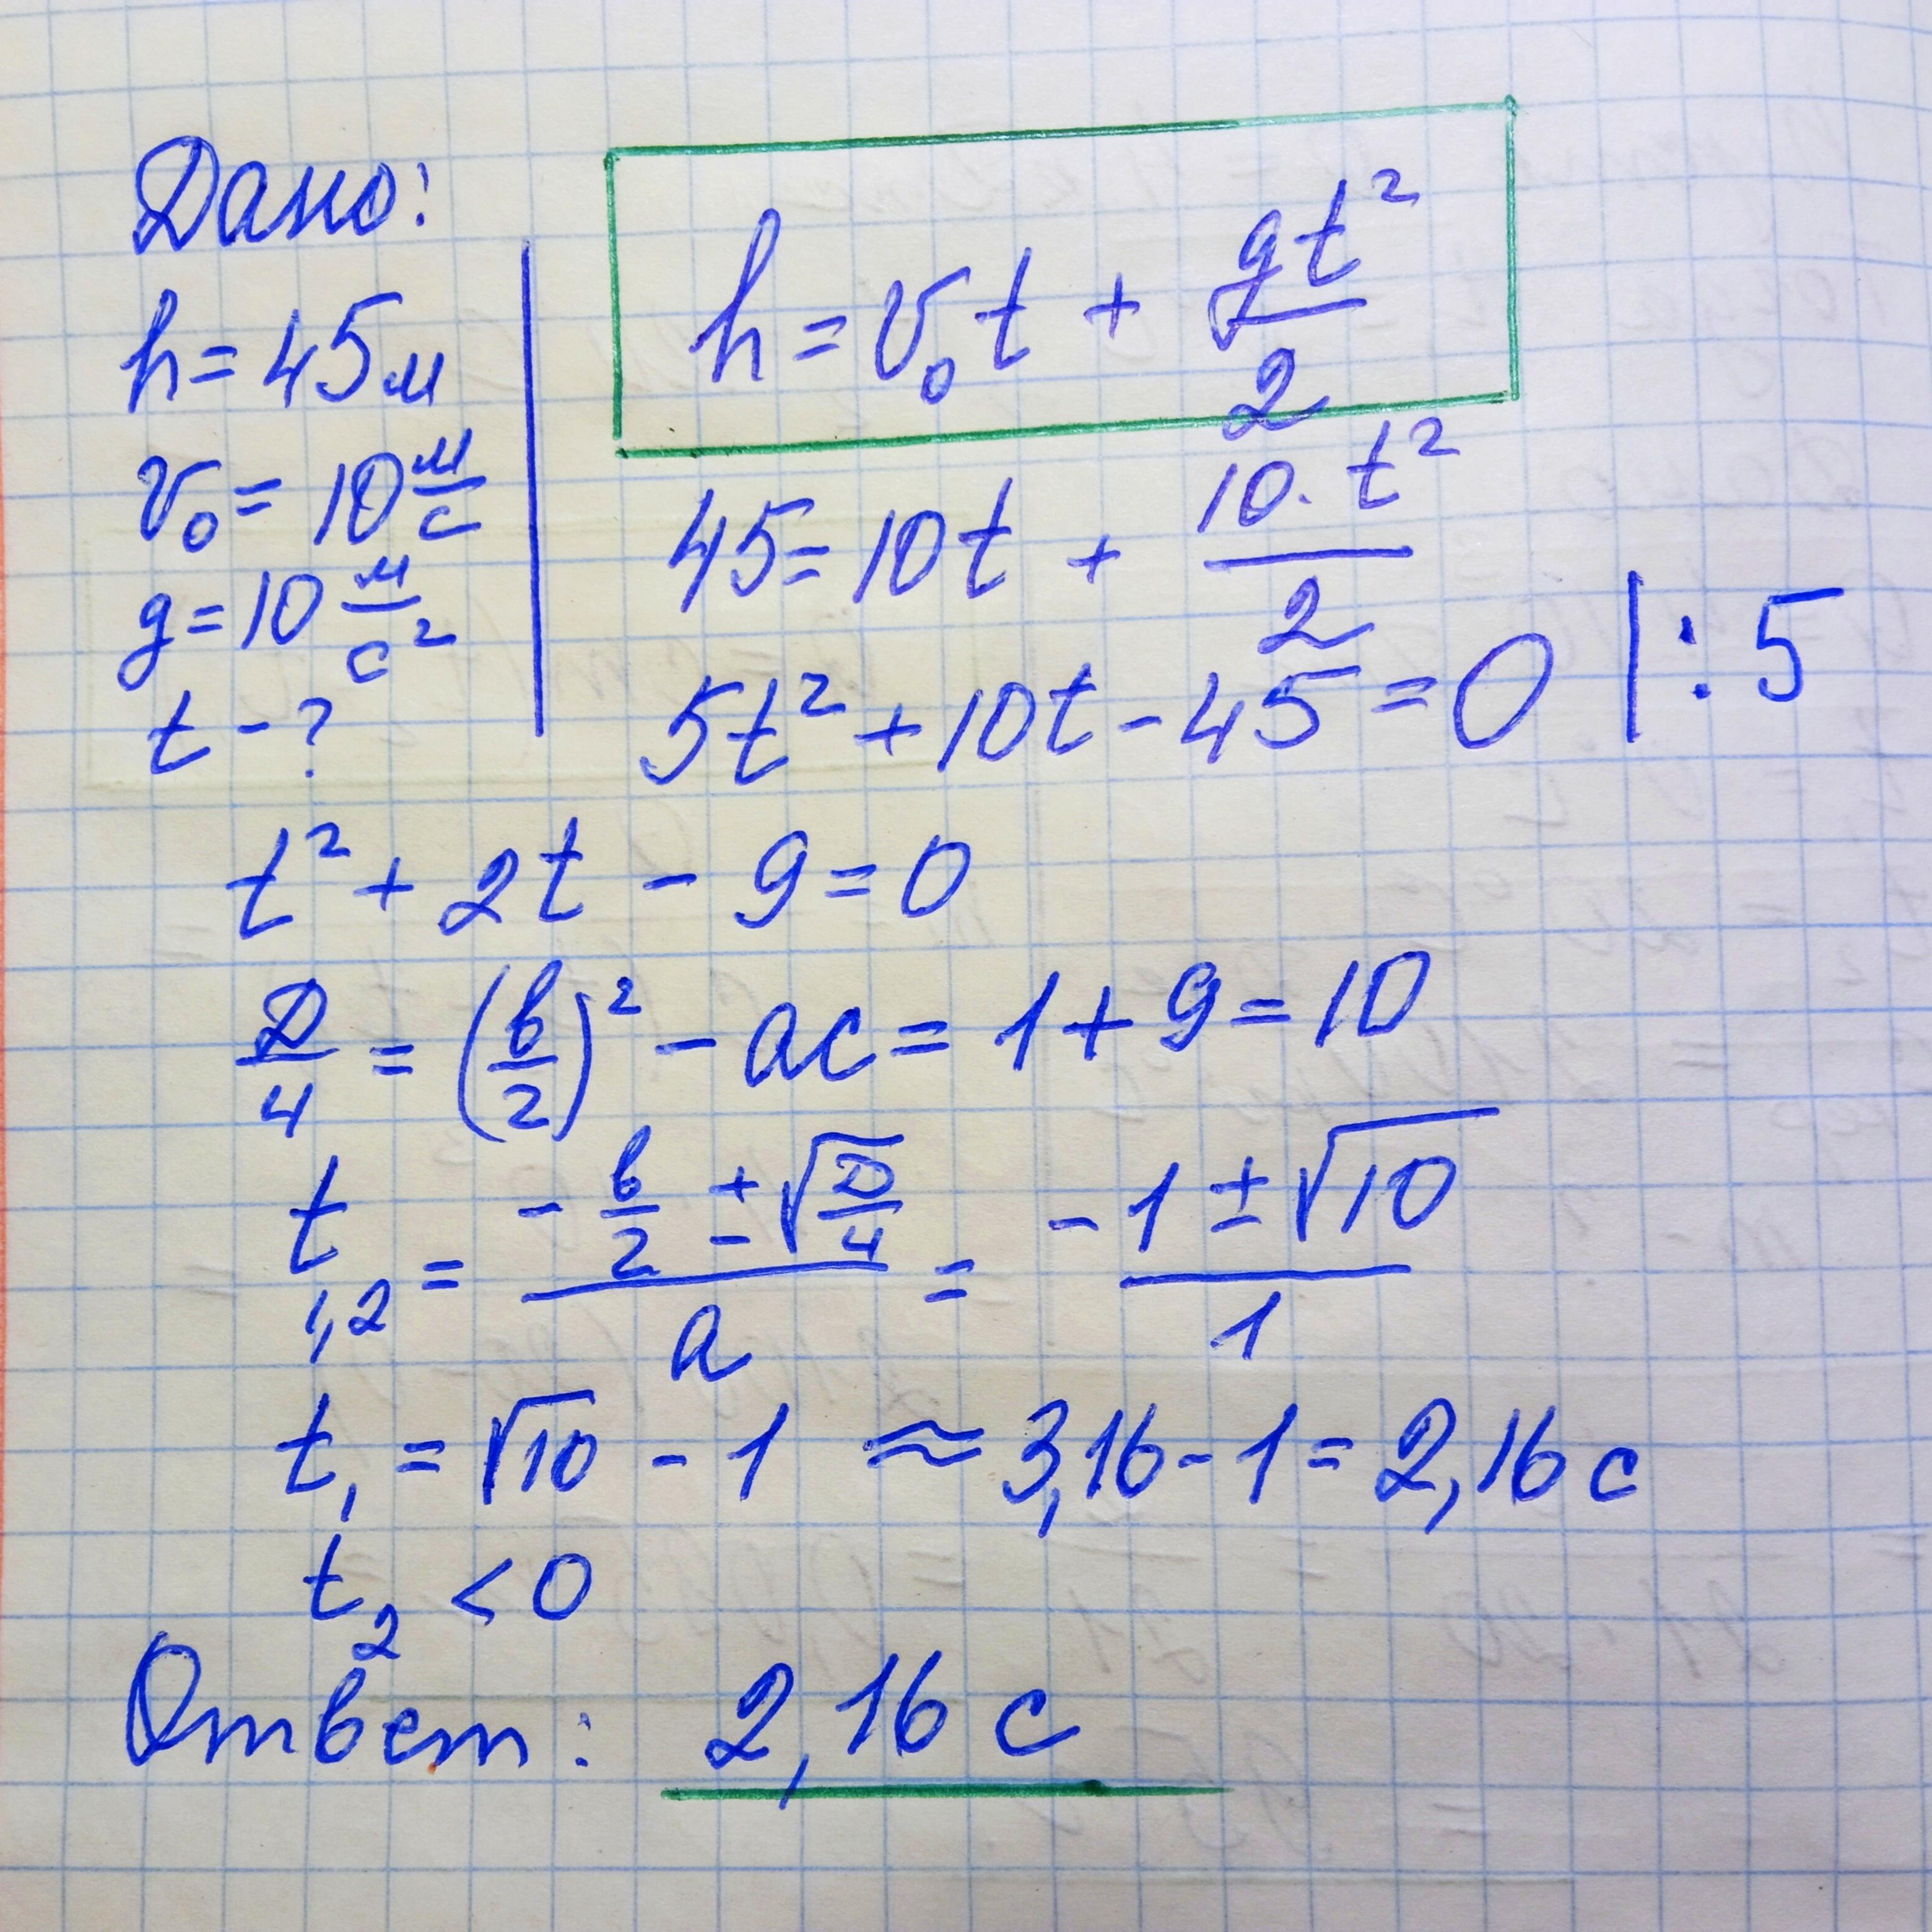 Дано:
h = 45 м
v₀ = 10 м/с
g = 10 м/с²
t - ?
h = v₀t + gt²/2
45 = 10t + 10·t²/2
5t² + 10t - 45 = 0 |:5
t² + 2t - 9 = 0
D/4 = (b/2)² - ac = 1 + 9 = 10
t₁,₂ = (-b/2 ± √(D/4))/a = (-1 ± √10)/1
t₁ = √10 - 1 ≈ 3,16 - 1 = 2,16 с
t₂ < 0
Ответ: 2,16 с